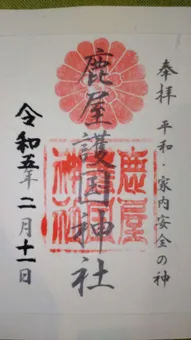 奉拝 平和 家内安全の神
鹿屋護国神社
鹿屋護国神社
令和五年二月十一日